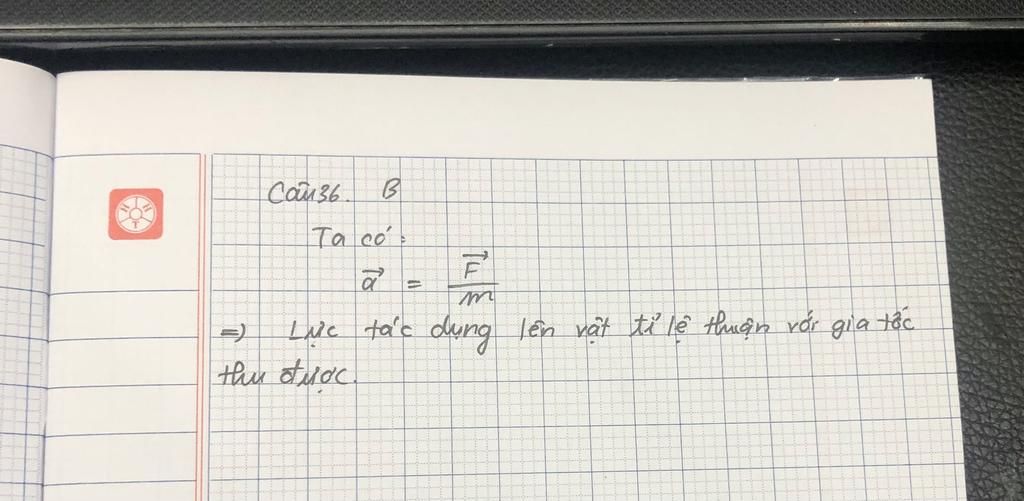 Câu 36. B
Ta có:
a⃗ = F⃗ / m
=> Lực tác dụng lên vật tỉ lệ thuận với gia tốc
thu được.